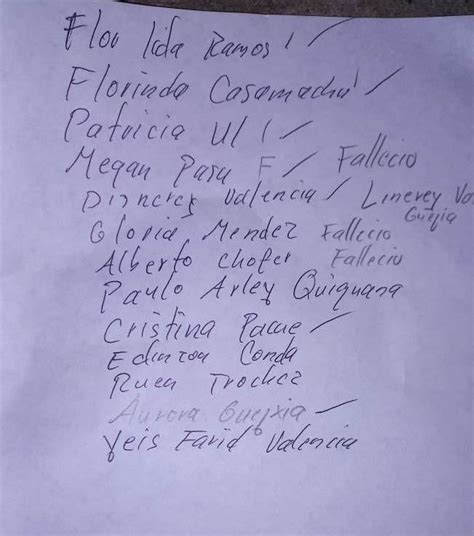 Flor lida Ramos 1 /
Florinda Casamachin /
Patricia Ul 1 /
Megan Pasu F / Fallecio
Disneley Valencia / Linerey Va
Guejia
Gloria Mendez Fallecio
Alberto Chofer Fallecio
Paulo Arley Quiguana
Cristina Pacue /
Edinson Conda
Ruen Trochez
Aurora Guejxia /
Yeis Farid Valencia